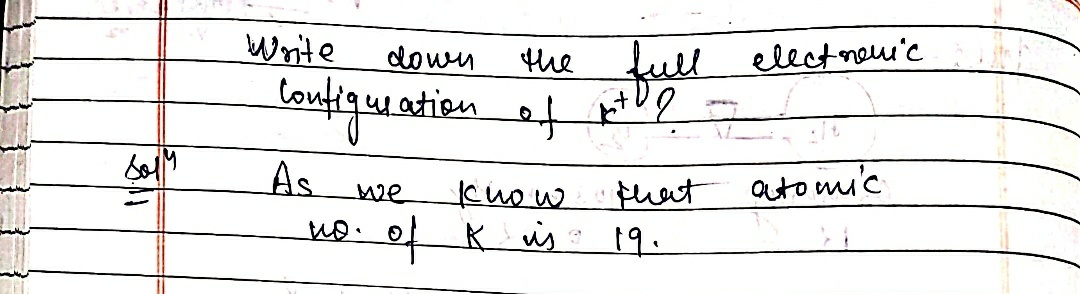 Write down the full electronic
configuration of K⁺?
Solⁿ As we know that atomic
no. of K is 19.